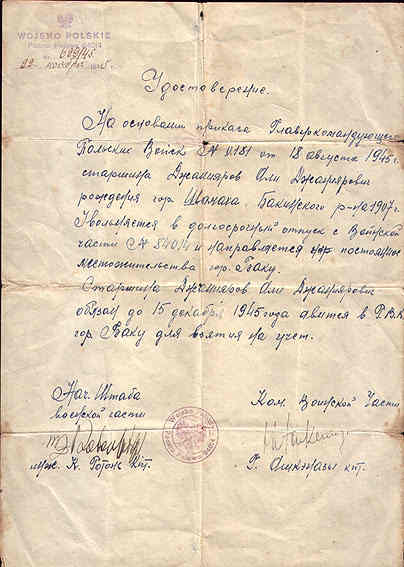 WOJSKO POLSKIE
Nr. 699/45
22 1945 r.
Удостоверение.
На основании приказа Главнокомандующего
Польских Войск № 0181 от 18 августа 1945 г.
старшина Джанияров Али Джанярови
рождения гор. Шамаха. Бакинского р-на 1907 г.
Увольняется в долгосрочный отпуск с Воинской
части № 84014 и направляется постоянное
местожительства гор. Баку.
Старшина Джанияров Али Джанярови
обязан до 15 декабря 1945 года явится в Р.В.К.
гор. Баку для взятия на учет.
Нач. Штаба
воинской части
Ком. Воинской Части
К. кпт.
Г. Ашкназы кпт.